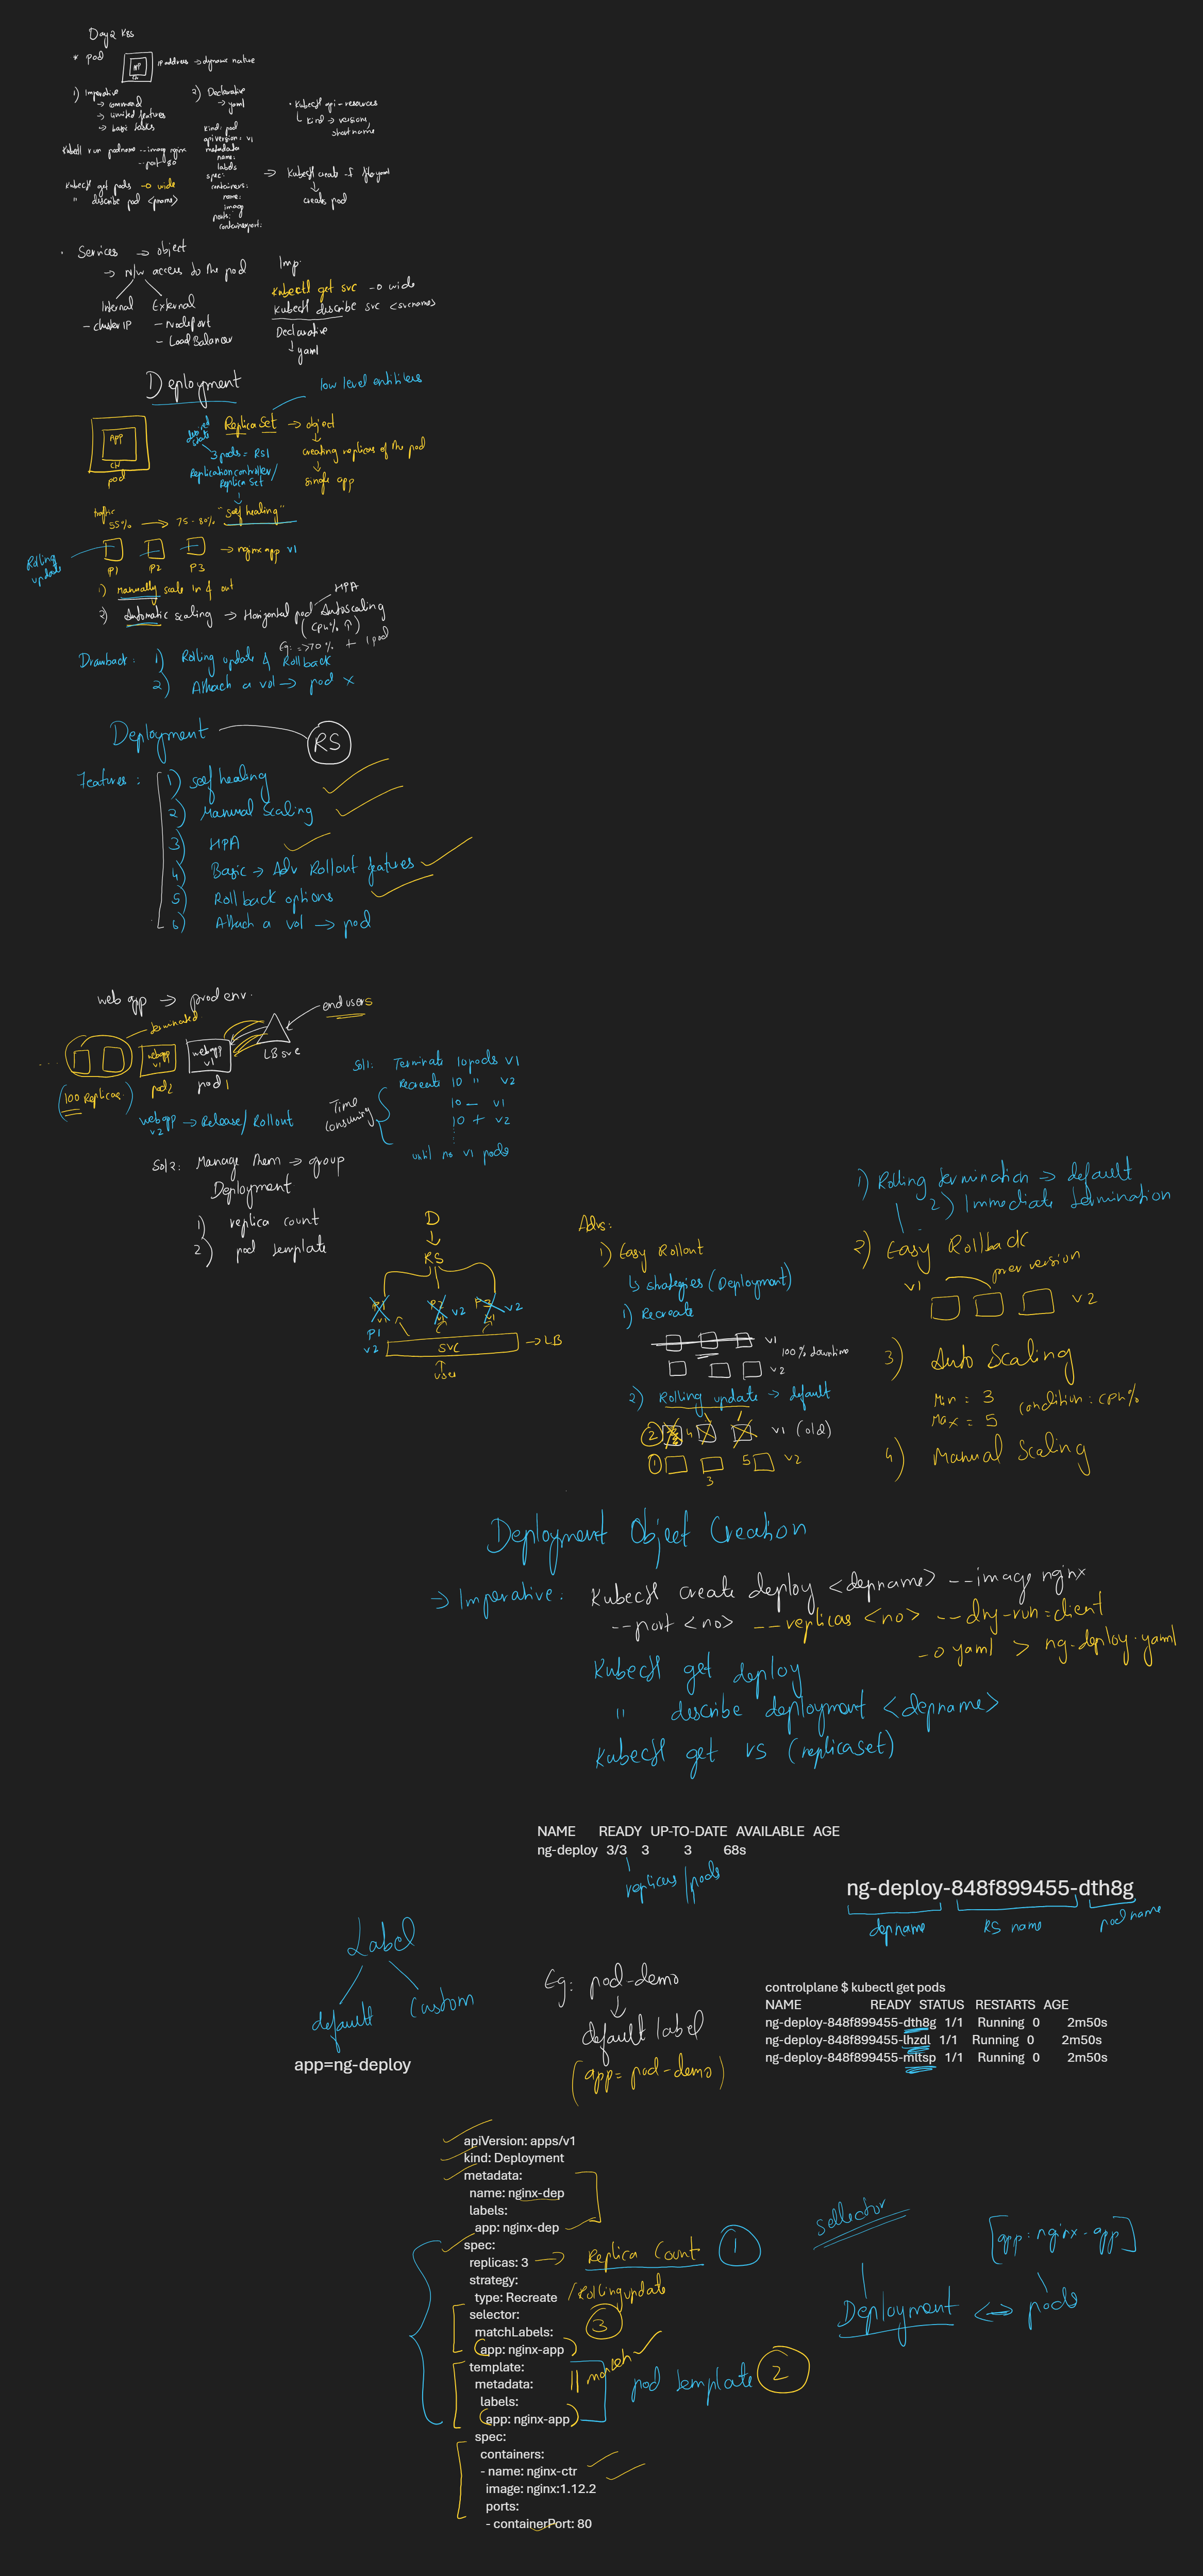 Day2 K8s
* pod
IP address → dynamic native
1) Imperative
→ command
→ limited features
→ basic tasks
2) Declarative
→ yaml
• Kubectl api-resources
kind → version,
shortname
Kubectl run podname --image nginx
--port 80
Kubectl get pods -o wide
" describe pod <pname>
kind: pod
apiversion: v1
metadata
name:
labels
spec:
containers:
name:
image
ports:
containerport:
→ Kubectl create -f file.yaml
creates pod
• Services → object
→ N/w access to the pod
Internal
- clusterIP
External
- Nodeport
- LoadBalancer
Imp:
Kubectl get svc -o wide
Kubectl describe svc <svcname>
Declarative
yaml
Deployment
low level entitlers
APP
pod
desired state
Replica Set → object
3 pods = RS1
creating replicas of the pod
single app
Replication controller/
Replica Set
"self healing"
traffic
55% → 75 - 80%
Rolling update
P1 P2 P3
→ nginx app v1
1) Manually scale in & out
2) Automatic scaling → Horizontal pod Autoscaling
HPA
(CPU% ↑)
Eg: =>70% + 1 pod
Drawback: 1) Rolling update & Rollback
2) Attach a vol → pod x
Deployment
RS
Features:
1) self healing
2) Manual Scaling
3) HPA
4) Basic → Adv Rollout features
5) Rollback options
6) Attach a vol → pod
web app → prod env.
terminated
end users
webapp v1
webapp v1
LB svc
(100 Replicas)
pod2
pod1
webapp v2 → Release/Rollout
Sol1: Terminate 10 pods v1
Recreate 10 " v2
10 - v1
10 + v2
until no v1 pods
Time consuming
Sol2: Manage them → group
Deployment
1) replica count
2) pod template
D
RS
P1 v1
P2 v1
P3 v1
P1 v2
v2
v2
SVC
→ LB
user
Advs:
1) Easy Rollout
↳ strategies (Deployment)
1) Recreate
v1
100% downtime
v2
2) Rolling update → default
2 4 v1 (old)
1 3 5 v2
1) Rolling termination → default
2) Immediate termination
2) Easy Rollback
prev version
v1
v2
3) Auto Scaling
Min = 3
Max = 5
condition: cpu%
4) Manual Scaling
Deployment Object Creation
→ Imperative: Kubectl create deploy <depname> --image nginx
--port <no> --replicas <no> --dry-run=client
-o yaml > ng-deploy.yaml
Kubectl get deploy
" describe deployment <depname>
Kubectl get rs (replicaset)
NAME READY UP-TO-DATE AVAILABLE AGE
ng-deploy 3/3 3 3 68s
replicas/pods
ng-deploy-848f899455-dth8g
depname
RS name
pod name
Label
default
custom
app=ng-deploy
Eg: pod-demo
default label
(app= pod-demo)
controlplane $ kubectl get pods
NAME READY STATUS RESTARTS AGE
ng-deploy-848f899455-dth8g 1/1 Running 0 2m50s
ng-deploy-848f899455-lhzdl 1/1 Running 0 2m50s
ng-deploy-848f899455-mltsp 1/1 Running 0 2m50s
apiVersion: apps/v1
kind: Deployment
metadata:
name: nginx-dep
labels:
app: nginx-dep
spec:
replicas: 3 → Replica Count 1
strategy:
type: Recreate /Rollingupdate
selector:
3
matchLabels:
app: nginx-app
match
template:
metadata:
pod template 2
labels:
app: nginx-app
spec:
containers:
- name: nginx-ctr
image: nginx:1.12.2
ports:
- containerPort: 80
sellector
[app: nginx-app]
Deployment ↔ pods